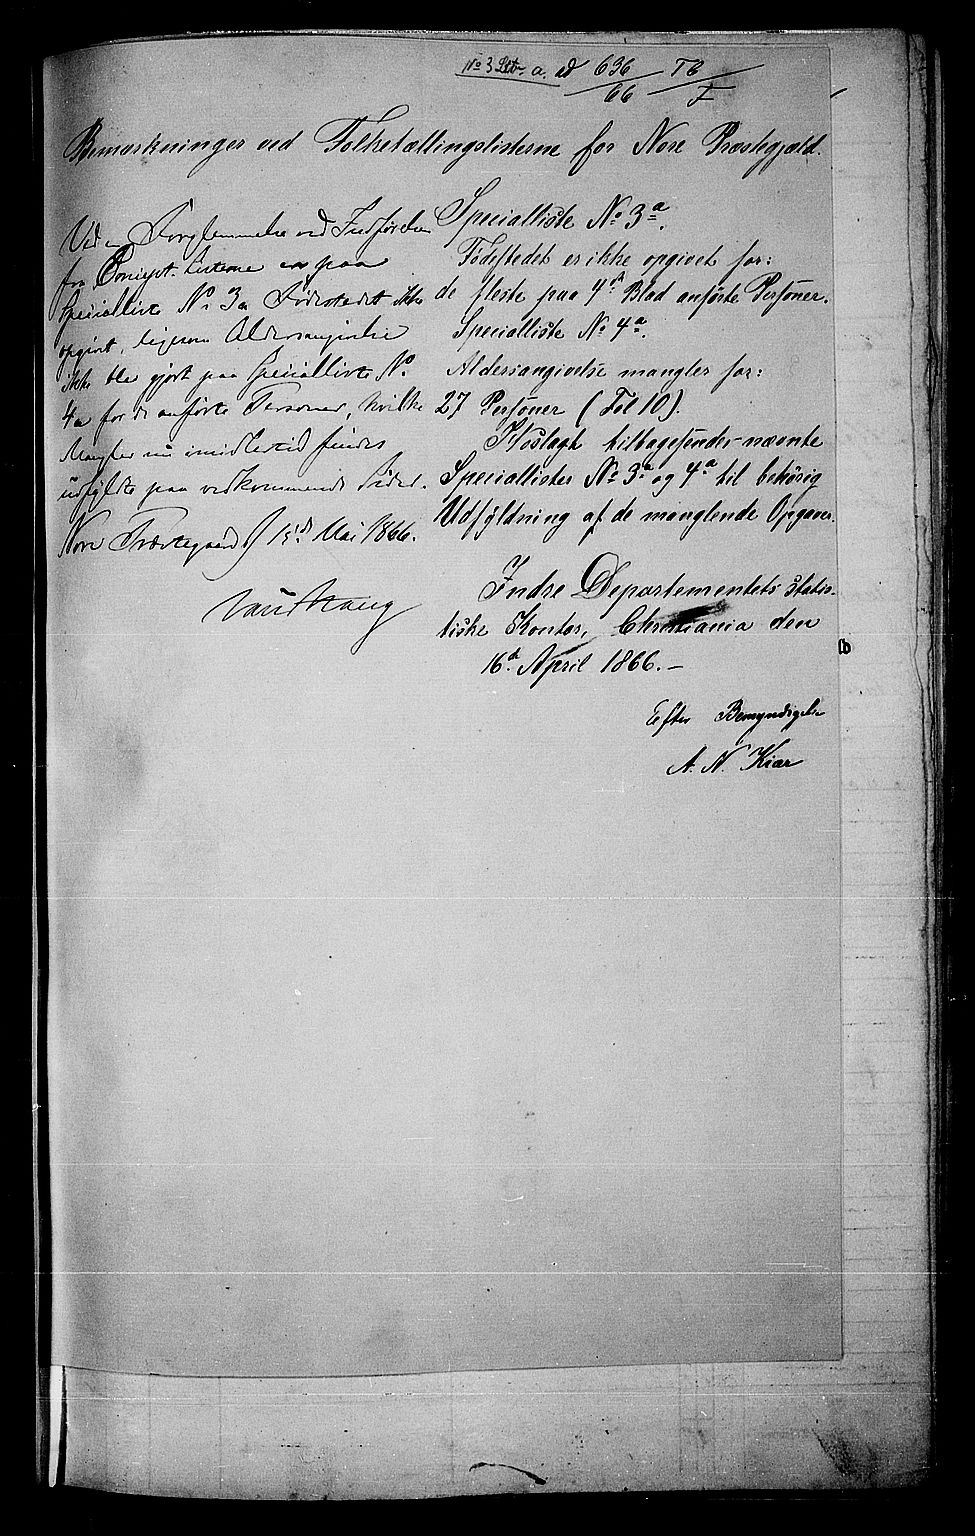 No 3 Litr. a. ad 636/66 TB/F
Bemærkninger ved Folketællingslisterne for Nore Præstegjæld.
Specialliste No 3a.
Fødestedet er ikke opgivet for:
de fleste paa 4de Blad anførte Personer.
Specialliste No 4a.
Aldersangivelse mangler for:
27 Personer (Fol 10).
Hoslagt tilbagesendes nævnte
Speciallister No 3a og 4a til behørig
Udfyldning af de manglende Opgaver.
Indre Departementets statis-
tiske Kontor, Christiania den
16de April 1866. –
Efter Bemyndigelse
A. N. Kiær
Ved en Forglemmelse ved Indførelsen
fra Concept-Listerne er paa
Specialliste No 3a Fødestedet ikke
opgivet, ligesom Aldersangivelse
ikke blev gjort paa Specialliste No
4a for de anførte Personer, hvilke
Mangler nu imidlertid findes
udfyldte paa vedkommende Sider.
Nore Præstegaard 15de Mai 1866.